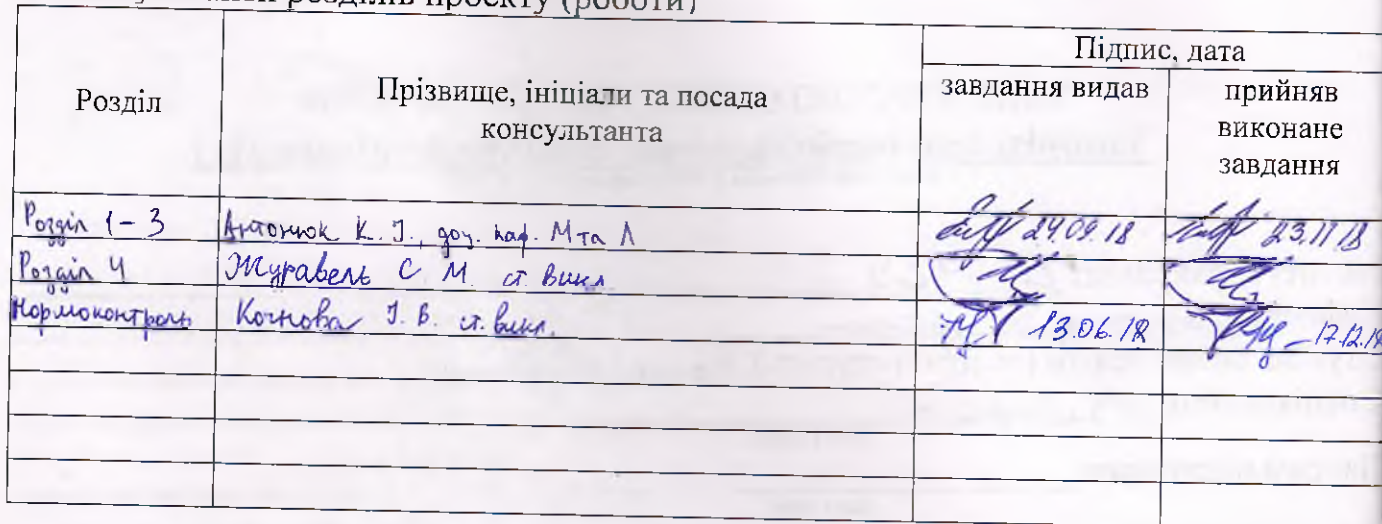 розділів проєкту (роботи)
Підпис, дата
Розділ
Прізвище, ініціали та посада
консультанта
завдання видав
прийняв
виконане
завдання
Розділ 1-3 Антонюк К. І., доц. каф. М та Л 24.09.18 23.11.18
Розділ 4 Журавель С. М. ст викл.
Нормоконтроль І. В. ст. викл. 13.06.18 17.12.